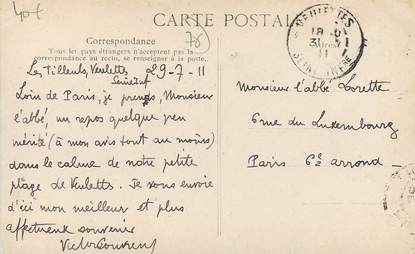 40f
CARTE POSTALE
Correspondance
78
Tous les pays étrangers n'acceptent pas la
correspondance au recto, se renseigner à la poste.
Les Tilleuls, Veulettes 29-7-11
Seine Inf
Loin de Paris, je prends, Monsieur
l'abbé, un repos quelque peu
mérité (à mon avis tout au moins)
dans le calme de notre petite
plage de Veulettes. Je vous envoie
d'ici mon meilleur et plus
affectueux souvenir
Victor
VEULETTES
Monsieur l'abbé Lorette
6 rue du Luxembourg
Paris 6e arrond.